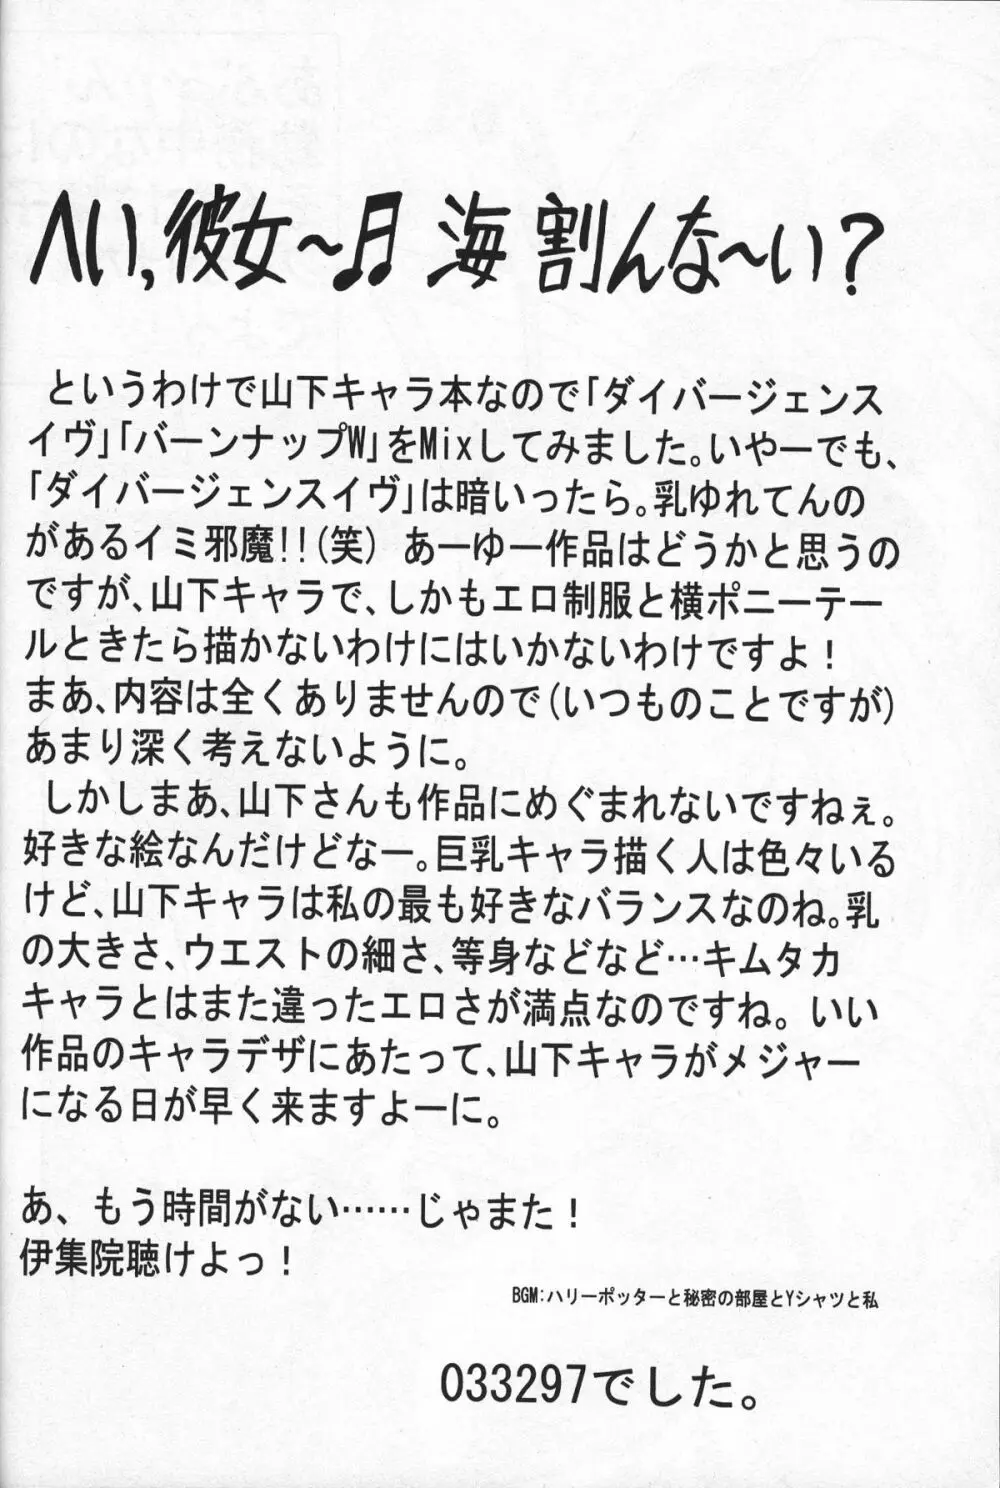 へい,彼女〜♬ 海 割んな〜い?
というわけで山下キャラ本なので「ダイバージェンス
イヴ」「バーンナップW」をMixしてみました。いやーでも、
「ダイバージェンスイヴ」は暗いったら。乳ゆれてんの
があるイミ邪魔!!(笑) あーゆー作品はどうかと思うの
ですが、山下キャラで、しかもエロ制服と横ポニーテー
ルときたら描かないわけにはいかないわけですよ!
まあ、内容は全くありませんので(いつものことですが)
あまり深く考えないように。
しかしまあ、山下さんも作品にめぐまれないですねぇ。
好きな絵なんだけどなー。巨乳キャラ描く人は色々いる
けど、山下キャラは私の最も好きなバランスなのね。乳
の大きさ、ウエストの細さ、等身などなど…キムタカ
キャラとはまた違ったエロさが満点なのですね。いい
作品のキャラデザにあたって、山下キャラがメジャー
になる日が早く来ますよーに。
あ、もう時間がない……じゃまた!
伊集院聴けよっ!
BGM:ハリーポッターと秘密の部屋とYシャツと私
033297でした。